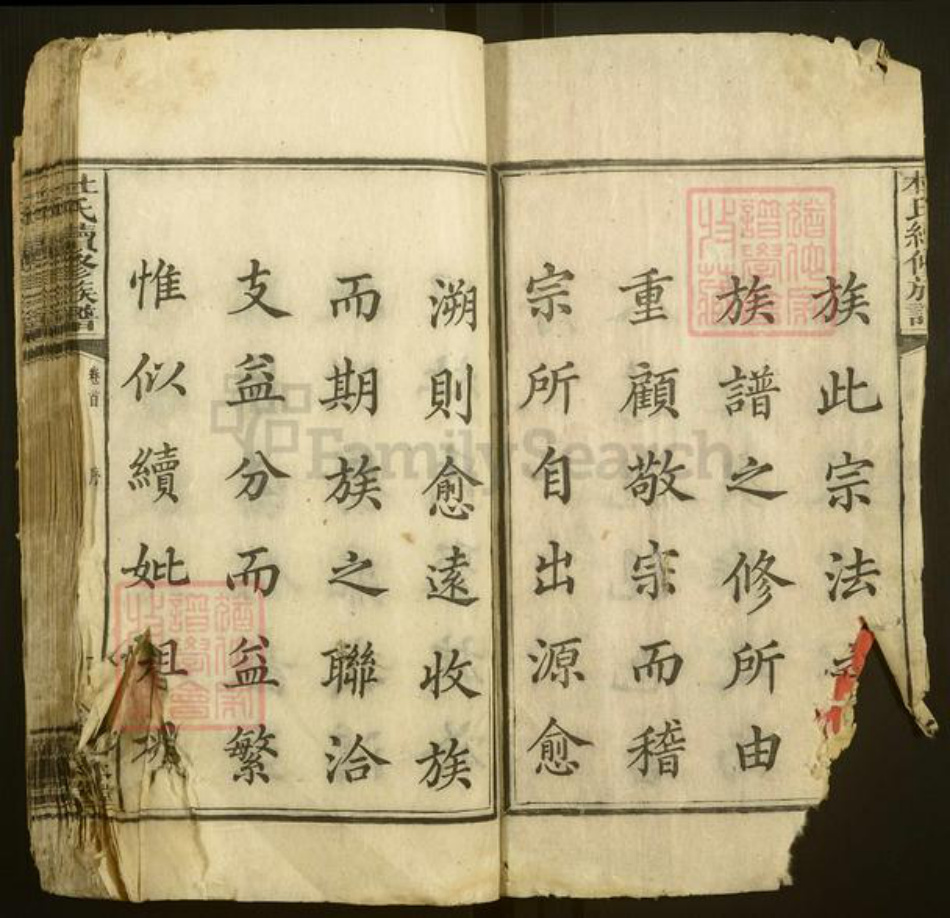 族此宗法
族譜之修所由
重顧敬宗而稽
宗所自出源愈
溯則愈遠收族
而期族之聯洽
支益分而益繁
惟似續妣祖
杜氏續修族譜
卷首
序
FamilySearch